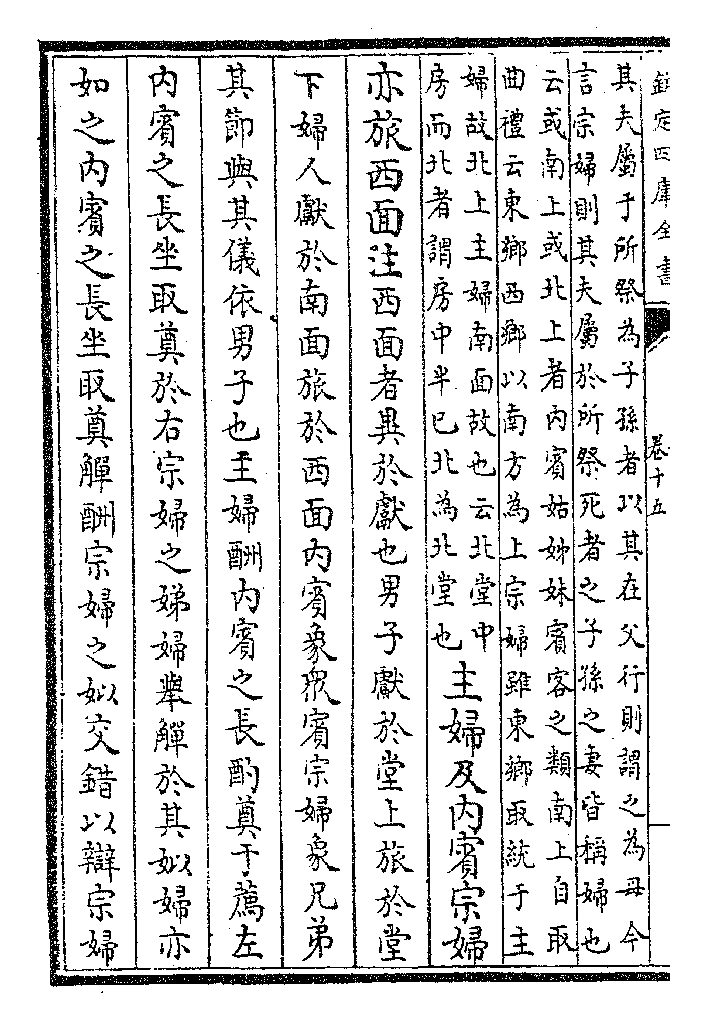 欽定四庫全書
卷十五
其夫屬于所祭為子孫者以其在父行則謂之為母今
言宗婦則其夫屬於所祭死者之子孫之妻皆稱婦也
云或南上或北上者内賓姑姊妹賓客之類南上自取
曲禮云東鄉西鄉以南方為上宗婦雖東鄉取統于主
婦故北上主婦南面故也云北堂中
房而北者謂房中半已北為北堂也
主婦及内賓宗婦
亦旅西面注西面者異於獻也男子獻於堂上旅於堂
下婦人獻於南面旅於西面内賓象衆賓宗婦象兄弟
其節與其儀依男子也主婦酬内賓之長酌奠于薦左
内賓之長坐取奠於右宗婦之娣婦舉觶於其姒婦亦
如之内賓之長坐取奠觶酬宗婦之姒交錯以辯宗婦